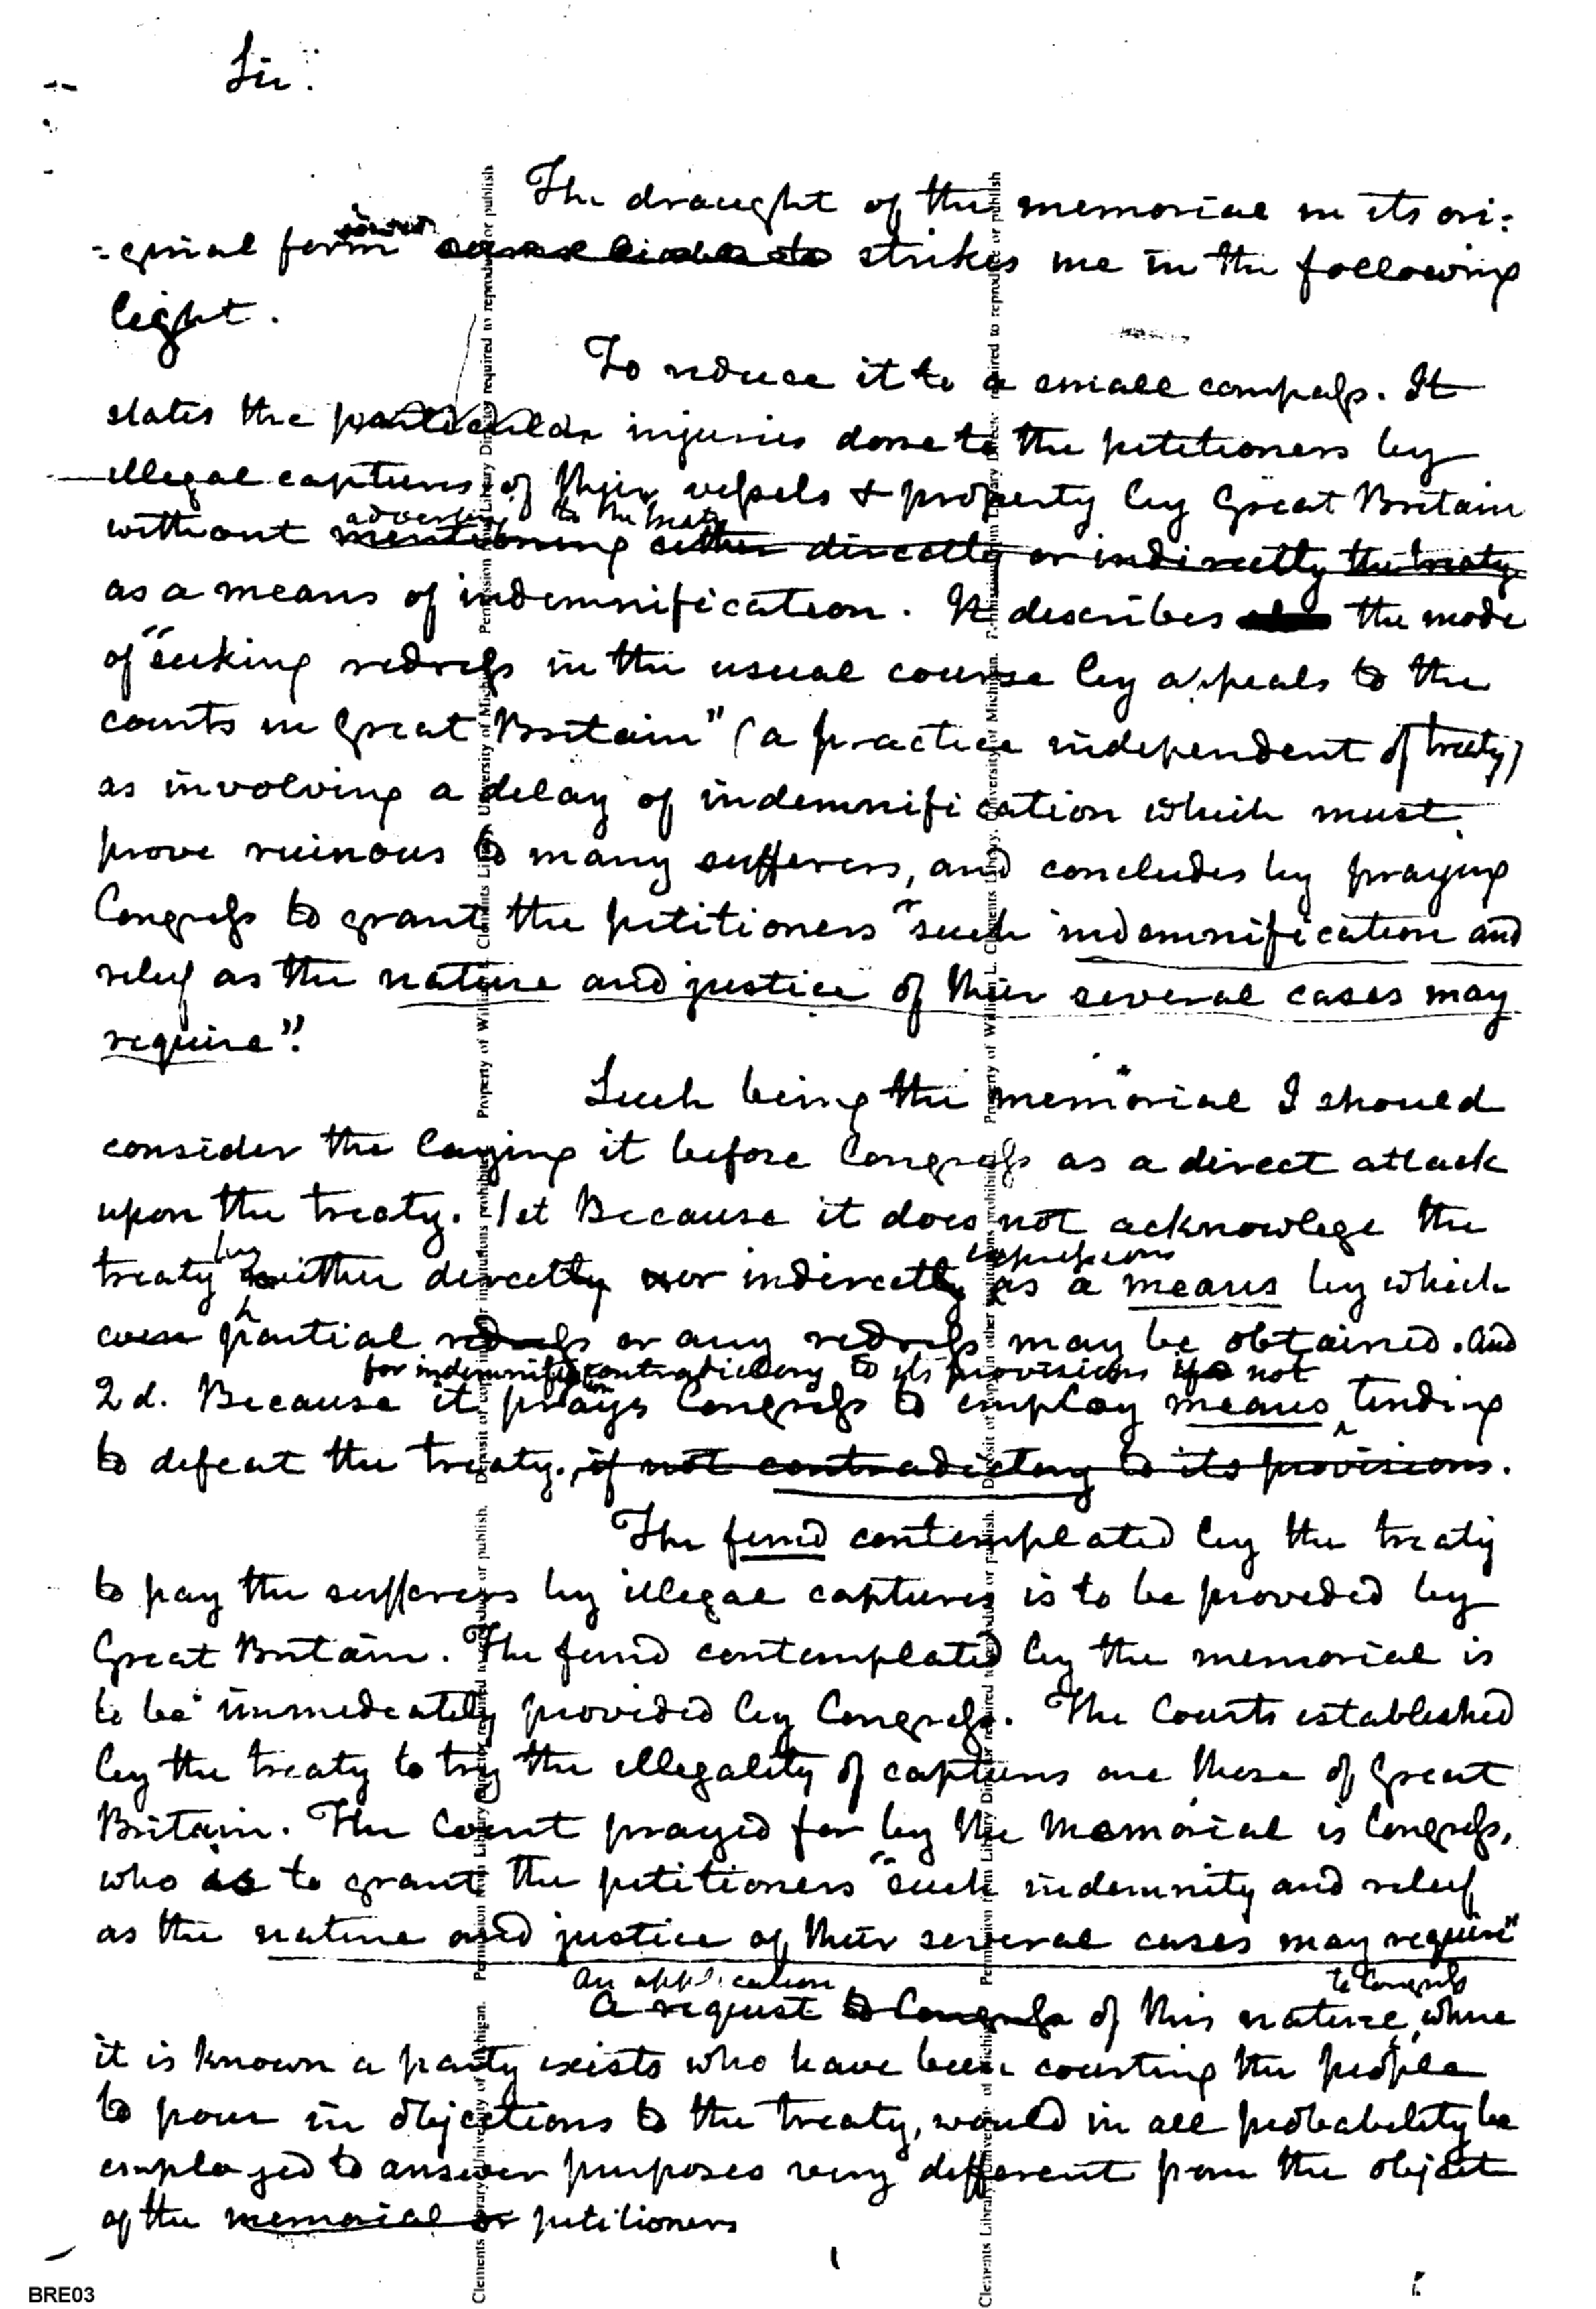 Sir:
The draught of the memorial in its ori:
=ginal form strikes me in the following
light.
To reduce it to a small compass. It
states the particular injuries done to the petitioners by
illegal captures of their vessels & property by Great Britain
adverting to the treaty
without mentioning either directly or indirectly the treaty
as a means of indemnification. It describes the mode
of "seeking redress in the usual course by appeals to the
courts in Great Britain" (a practice independent of treaty)
as involving a delay of indemnification which must
prove ruinous to many sufferers, and concludes by praying
Congress to grant the petitioners "such indemnification and
relief as the nature and justice of their several cases may
require".
Such being the memorial I should
consider the laying it before Congress as a direct attack
upon the treaty. 1st Because it does not acknowlege the
by expressions
treaty neither directly nor indirectly as a means by which
even partial redress or any redress may be obtained. And
for indemnification contradictory to its provisions if not
2d. Because it prays Congress to employ means tending
to defeat the treaty, if not contradictory to its provisions.
The fund contemplated by the treaty
to pay the sufferers by illegal captures is to be provided by
Great Britain. The fund contemplated by the memorial is
to be immediately provided by Congress. The Courts established
by the treaty to try the illegality of captures are those of Great
Britain. The Court prayed for by the Memorial is Congress,
who is to grant the petitioners "such indemnity and relief
as the nature and justice of their several cases may require"
An application to Congress
A request to Congress of this nature, where
it is known a party exists who have been courting the people
to pour in objections to the treaty, would in all probability be
employed to answer purposes very different from the object
of the memorial or petitioners
BRE03
Property of William L. Clements Library, University of Michigan. Permission from Library Director required to reproduce or publish
Clements Library, University of Michigan. Permission from Library Director required to reproduce or publish. Deposit of copies in other institutions prohibited.